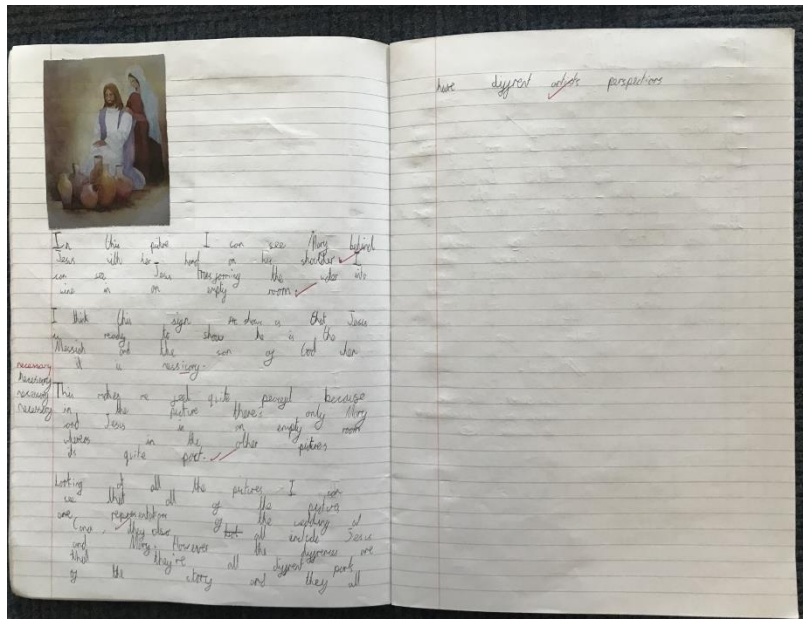 In this picture I can see Mary behind
Jesus with her hand on her shoulder. I
can see Jesus transforming the water into
wine in an empty room.
I think this sign shows is that Jesus
is ready to show he is the
Messiah and the son of God when
it is nessicary.
necessary
necessary
necessary
necessary
This makes me feel quite because
in the picture there's only Mary
and Jesus in an empty room
wheres in the other pictures
its quite
Looking at all the pictures I can
see that all of the pictures
are representation of the wedding at
Cana, they also all include Jesus
and Mary. However the differences are
that they're all diffrent parts
of the story and they all
have diffrent artists